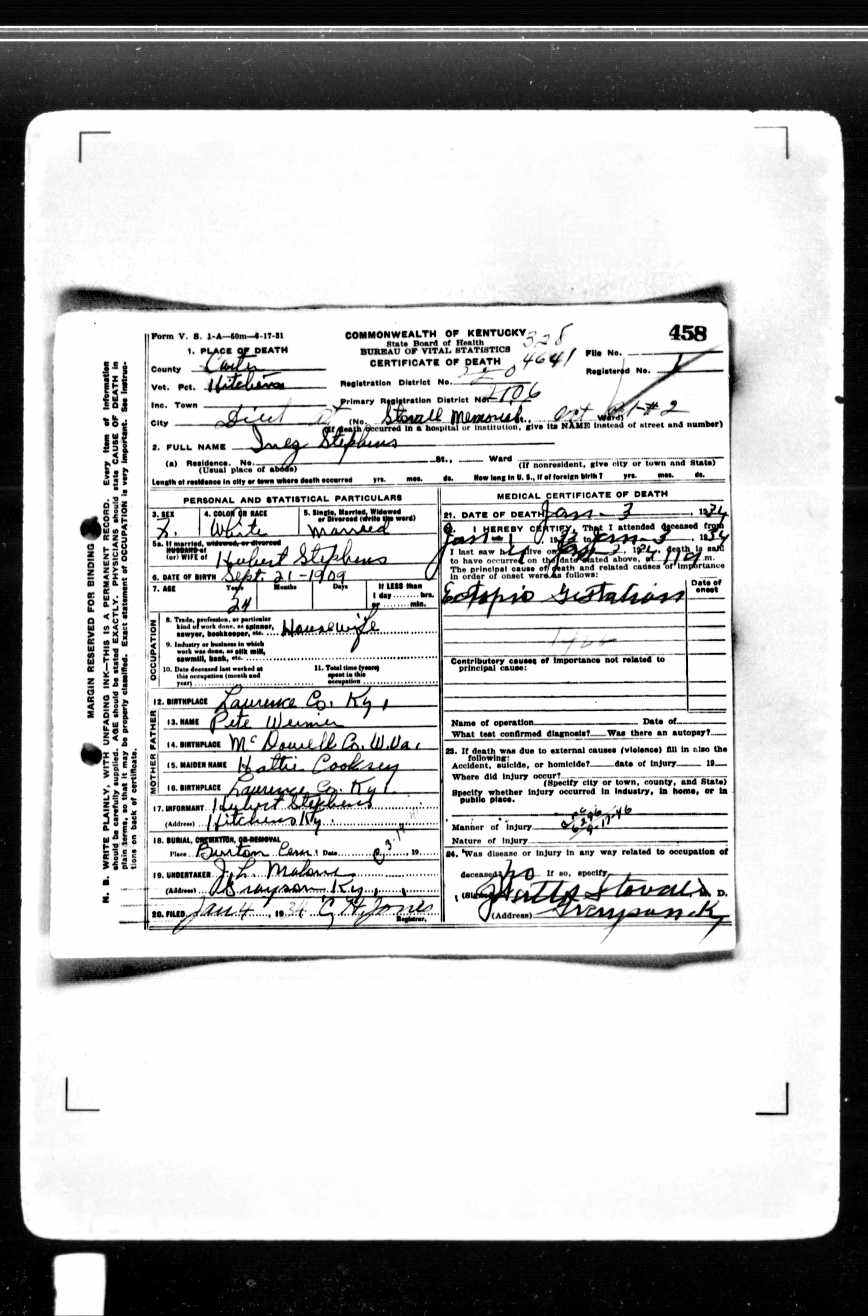 458
Form V. S. 1-A—50m—6-17-31
COMMONWEALTH OF KENTUCKY
State Board of Health
BUREAU OF VITAL STATISTICS
CERTIFICATE OF DEATH
328
4641
File No.
Registered No. 1
1. PLACE OF DEATH
County Carter
Vot. Pct. Hitchens
Registration District No.
Inc. Town
Primary Registration District No. 2106
City Died at (No. Stovall Memorial, Ward)
(If death occurred in a hospital or institution, give its NAME instead of street and number)
2. FULL NAME Inez Stephens
(a) Residence. No. St., Ward (If nonresident, give city or town and State)
(Usual place of abode)
Length of residence in city or town where death occurred yrs. mos. ds. How long in U. S., if of foreign birth? yrs. mos. ds.
PERSONAL AND STATISTICAL PARTICULARS
3. SEX
4. COLOR OR RACE White
5. Single, Married, Widowed or Divorced (write the word) Married
5a. If married, widowed, or divorced
HUSBAND of
(or) WIFE of Hubert Stephens
6. DATE OF BIRTH Sept. 21-1909
7. AGE Years Months Days If LESS than
1 day hrs.
or min.
24
OCCUPATION
8. Trade, profession, or particular
kind of work done, as spinner,
sawyer, bookkeeper, etc. Housewife
9. Industry or business in which
work was done, as silk mill,
sawmill, bank, etc.
10. Date deceased last worked at
this occupation (month and
year)
11. Total time (years)
spent in this
occupation
12. BIRTHPLACE Laurence Co. Ky.
FATHER
13. NAME Pete Weimer
14. BIRTHPLACE McDowell Co. W. Va.
MOTHER
15. MAIDEN NAME Hattie Cooksey
16. BIRTHPLACE Laurence Co. Ky.
17. INFORMANT Hubert Stephens
(Address) Hitchens Ky.
18. BURIAL, CREMATION, OR REMOVAL
Place Burton Cem. Date , 19
19. UNDERTAKER J. L. Malone
(Address) Grayson Ky.
20. FILED Jan 4, 1934 C. H. Jones
Registrar.
MEDICAL CERTIFICATE OF DEATH
21. DATE OF DEATH Jan - 3, 1934
I HEREBY CERTIFY, That I attended deceased from
Jan - 1, 19 to Jan - 3, 1934
I last saw h alive on , 1934, death is said
to have occurred on the date stated above, at m.
The principal cause of death and related causes of importance
in order of onset were as follows:
Date of onset
Ectopic Gestation
Contributory causes of importance not related to
principal cause:
Name of operation Date of
What test confirmed diagnosis? Was there an autopsy?
23. If death was due to external causes (violence) fill in also the
following:
Accident, suicide, or homicide? date of injury 19
Where did injury occur?
(Specify city or town, county, and State)
Specify whether injury occurred in industry, in home, or in
public place.
Manner of injury
Nature of injury
24. Was disease or injury in any way related to occupation of
deceased? no If so, specify
(Signed) Stovall M. D.
(Address) Grayson Ky
MARGIN RESERVED FOR BINDING
N. B. WRITE PLAINLY, WITH UNFADING INK—THIS IS A PERMANENT RECORD. Every item of information
should be carefully supplied. AGE should be stated EXACTLY. PHYSICIANS should state CAUSE OF DEATH in
plain terms, so that it may be properly classified. Exact statement of OCCUPATION is very important. See instruc-
tions on back of certificate.